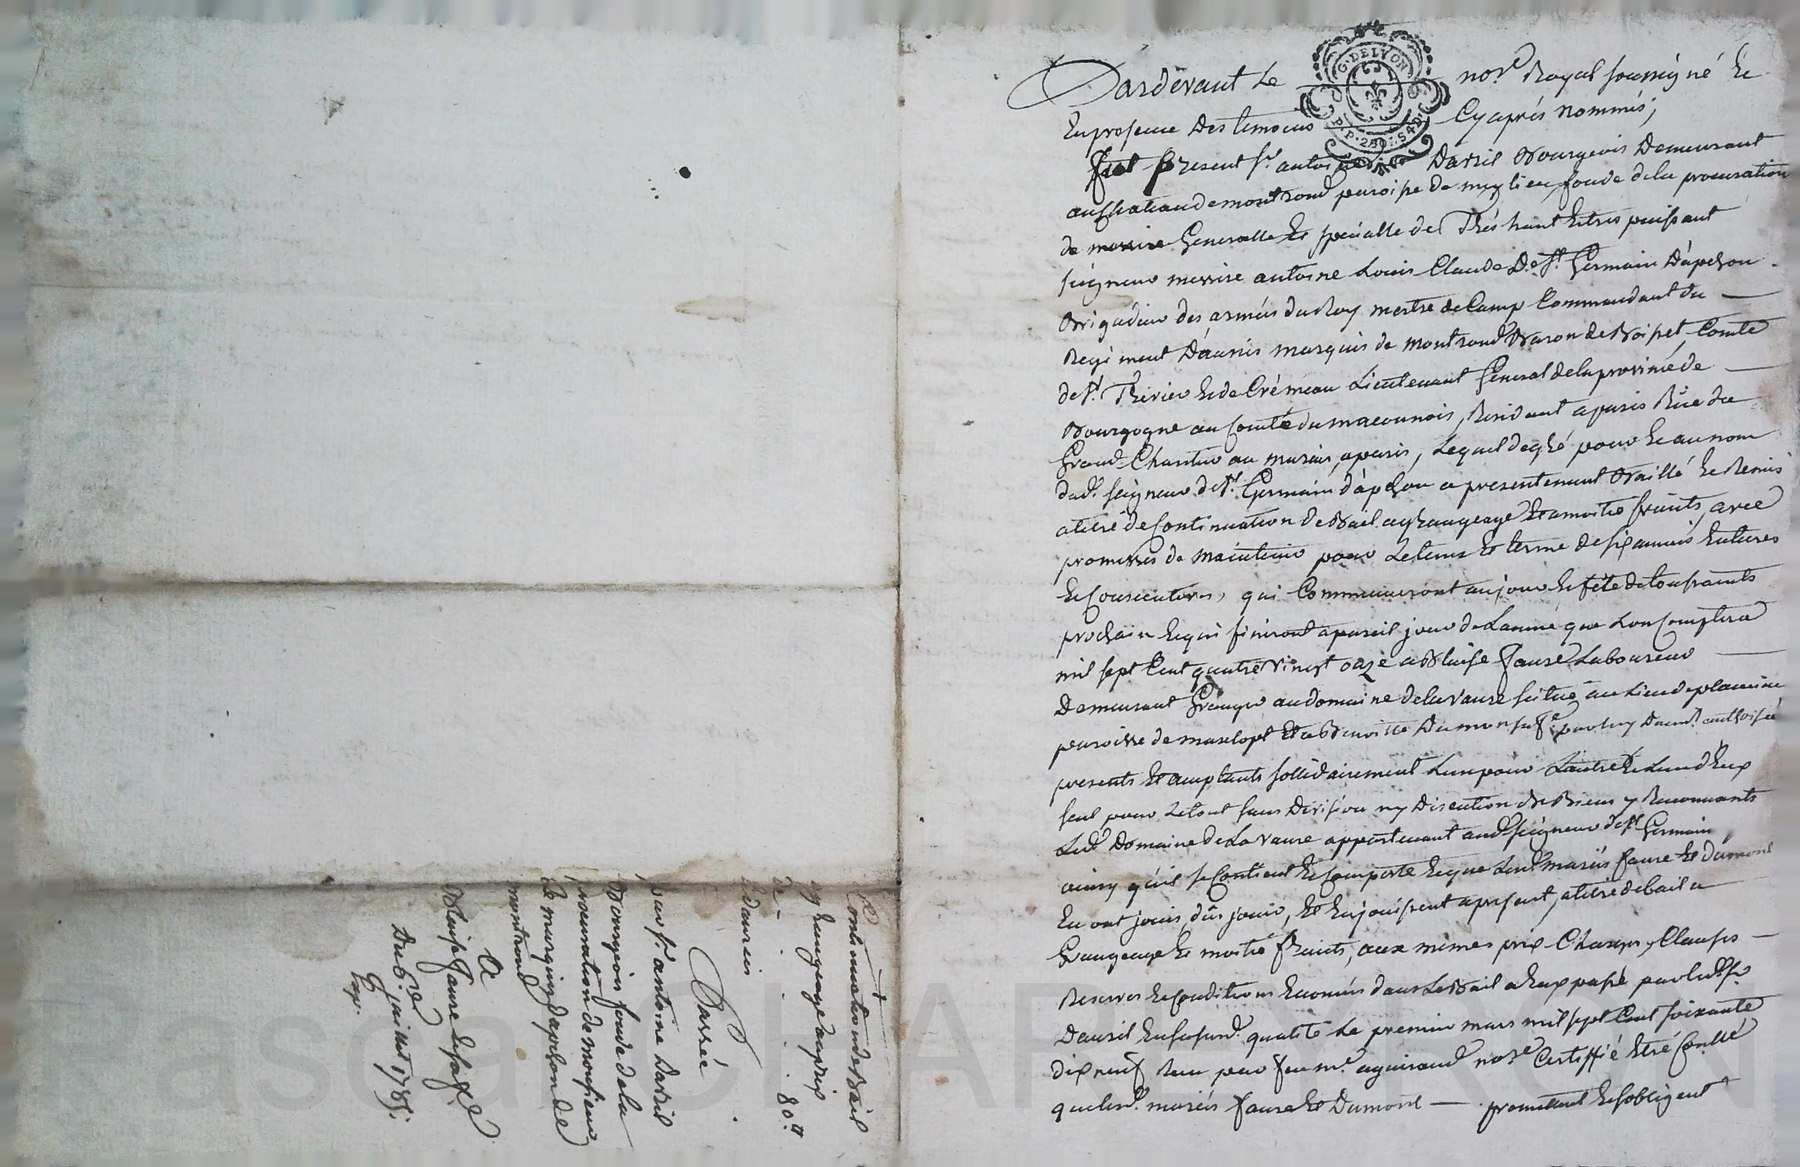 Pardevant Le nore Royal soussigné Et
En presence Des temoins Cy après nommés;
fut présent Sr. antoine Darsil Bourgeois Demeurant
au chateau de montrond paroisse de meylieu, fondé de la procuration
de messire Generalle Et specialle de Tres haut Et tres puissant
seigneur messire antoine Louis Claude De St. Germain Dapchon
Brigadier des armées du Roy mestre de Camp Commandant du
Regiment Daunis marquis de montrond Baron de Boisset, Comte
de St. Therier Et de Crémeau Lieutenant General de la province de
Bourgogne au Comté du maconnois, Residant a paris Rüe du
Grand Chantier au marais, a paris, Lequel de gré pour Et au nom
dud. seigneur de St. Germain dapchon a presentement Baillé Et Remis
a titre de Continuation de Bail a Grangeage Et a moitié fruits, avec
promesses de maintenir pour Le tems Et terme de six années Entieres
Et Consecutives, qui Commenceront au jour Et fête de tous saints
prochain Et qui finiront a pareil jour de Lannée que Lon Comptera
mil sept Cent quatre vingt onze a Blaise faure Laboureur
Demeurant Granger au domaine de la Vaure scitué au Lieu de
paroisse de Et a Benoitte Dumon sa fe. par luy Dument authorisée
presents Et acceptants sollidairement Lun pour Lautre Et Lun dEux
seul pour Le tout sans Division ny Discution de Biens y Renonçants
Led. Domaine de La Vaure appartenant aud. seigneur de St. Germain,
ainsy quil se Contient Et Comporte Et que Lesd. mariés faure Et dumont
En ont jouis, dû jouir, Et En jouissent a present, a titre de bail a
Grangeage Et moitié fruits, aux mêmes prix Charges, Clauses
Reserves Et Conditions Enoncés dans Le Bail a Eux passé par led. Sr.
Darsil En sa susd. qualité Le premier mars mil sept Cent soixante
dix neuf Reçu par feu me. nore Certiffié Etré Conllé
que lesd. mariés faure Et Dumont — promettant Et sobligeant
Continuation de Bail
a Grangeage au prix
de - - - - 80 ₶
daursin
Passée
par Sr. antoine Darsil
Bourgeois fondé de la
procuration de monsieur
Le marquis dapchon de
montrond
a
Blaise faure Et sa fe
Du 6e juillet 1785.